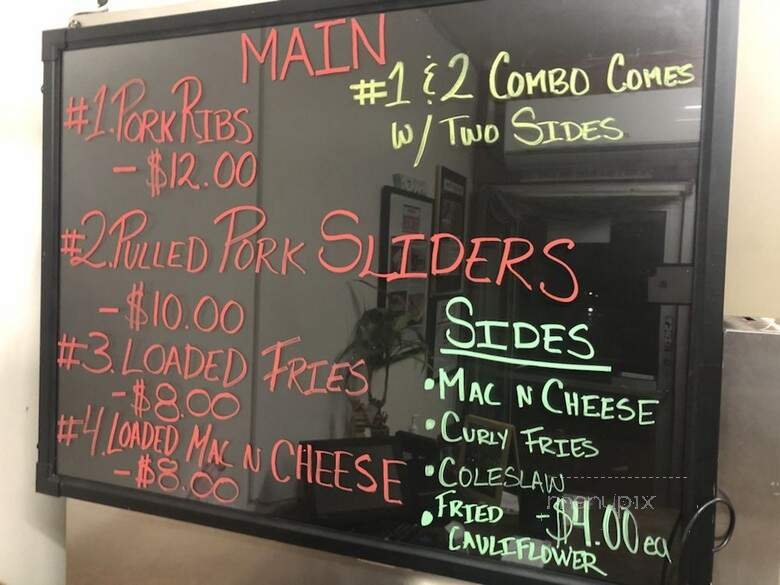 MAIN
#1. PORK RIBS
- $12.00
#1 & 2 COMBO COMES
W/ TWO SIDES
#2. PULLED PORK SLIDERS
- $10.00
#3. LOADED FRIES
- $8.00
#4. LOADED MAC N CHEESE
- $8.00
SIDES
• MAC N CHEESE
• CURLY FRIES
• COLESLAW
• FRIED CAULIFLOWER
- $4.00 ea
menupix